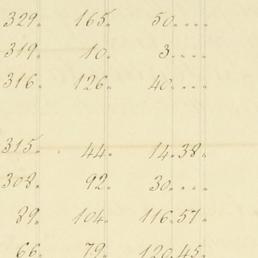 329. 165. 50....
319. 10. 3....
316. 126. 40....
315. 44. 14.38.
308. 92. 30....
89. 104. 116.57.
66. 79. 120.45.